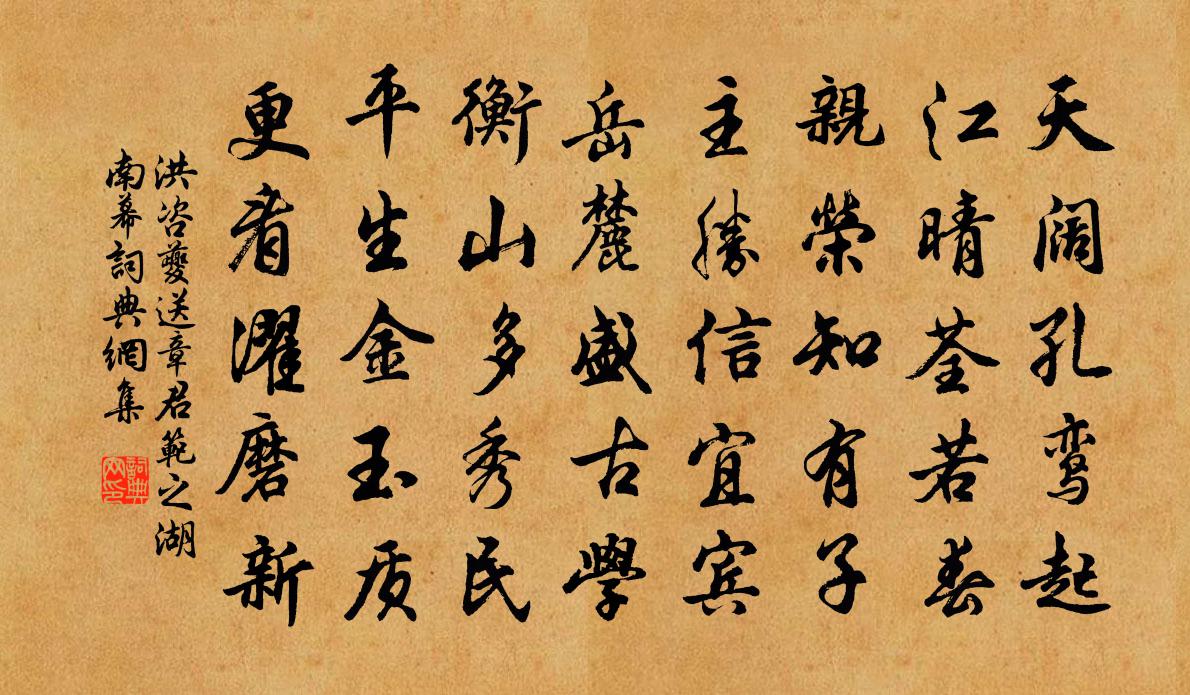 天阔孔鸾起
江晴荃若春
親榮知有子
主勝信宜賓
岳麓盛古學
衡山多秀民
平生金玉质
更看濯磨新
洪咨夔送章君範之湖
南幕詞典網集
詞典
网印